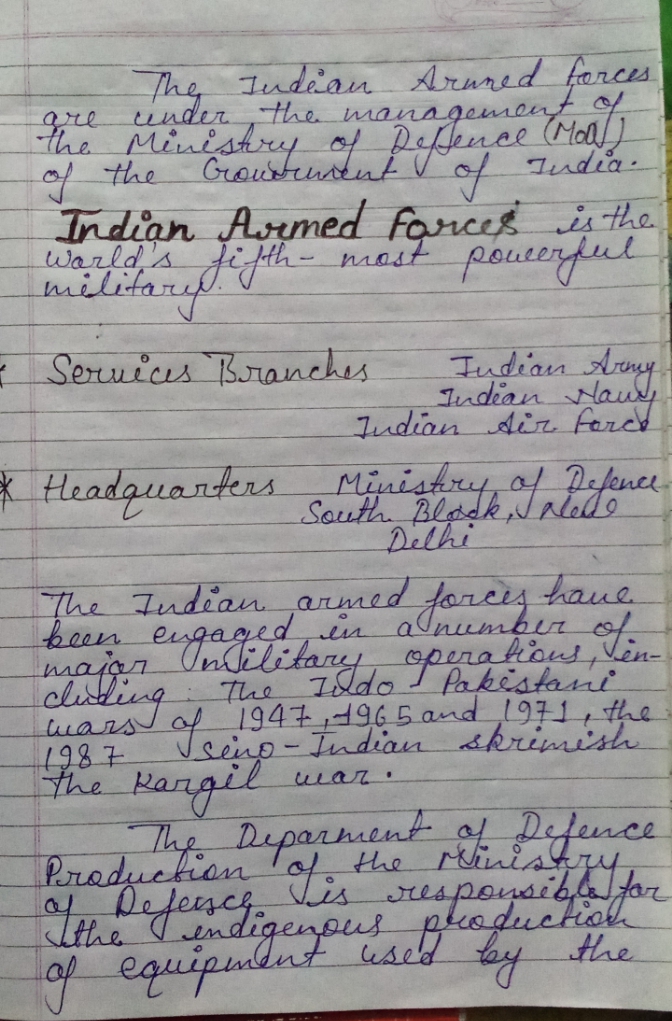 The Indian Armed forces
are under the management of
the Ministry of Defence (MoD)
of the Government of India.
Indian Armed Forces is the
world's fifth-most powerful
military.
Services Branches Indian Army
Indian Navy
Indian Air Force
* Headquarters Ministry of Defence
South Block, New
Delhi
The Indian armed forces have
been engaged in a number of
major military operations, in-
cluding: The Indo-Pakistani
wars of 1947, 1965 and 1971, the
1987 sino-Indian skrimish
the Kargil war.
The Deparment of Defence
Production of the Ministry
of Defence is responsible for
the indigenous production
of equipment used by the